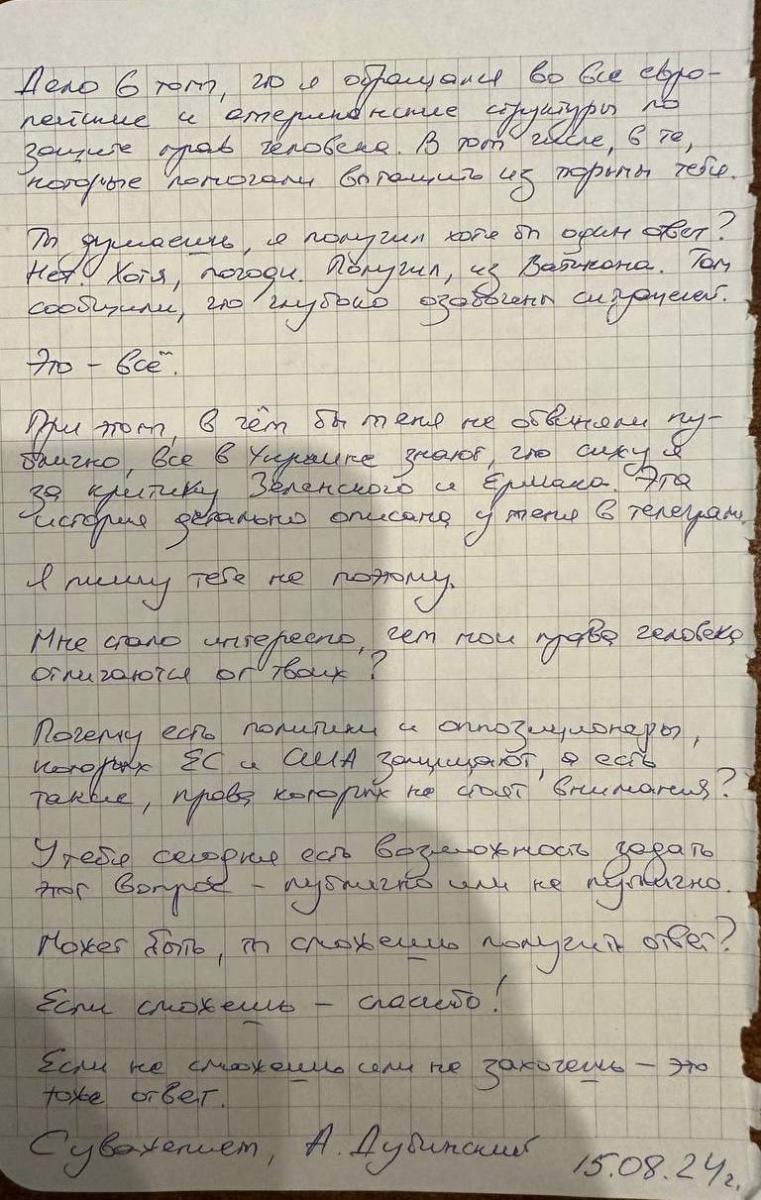 Дело в том, что я обращался во все евро-
пейские и американские структуры по
защите прав человека. В том числе, в те,
которые помогали вытащить из тюрьмы тебя.
Ты думаешь, я получил хотя бы один ответ?
Нет. Хотя, погоди. Получил, из Ватикана. Там
сообщили, что глубоко озабочены ситуацией.
Это – всё.
При этом, в чём бы меня не обвиняли пу-
блично, все в Украине знают, что сижу я
за критику Зеленского и Ермака. Эта
история детально описана у меня в телеграм.
Я пишу тебе не поэтому.
Мне стало интересно, чем мои права человека
отличаются от твоих?
Почему есть политики и оппозиционеры,
которых ЕС и США защищают, а есть
такие, права которых не стоят внимания?
У тебя сегодня есть возможность задать
этот вопрос – публично или не публично.
Может быть, ты сможешь получить ответ?
Если сможешь – спасибо!
Если не сможешь или не захочешь – это
тоже ответ.
С уважением, А. Дубинский
15.08.24г.